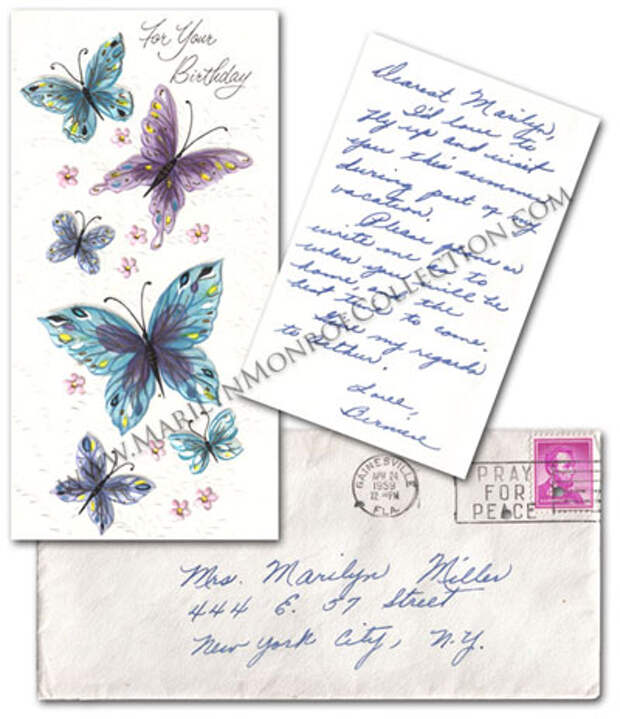 For Your
Birthday
Dearest Marilyn,
I'd love to
fly up and visit
you this summer
during part of my
vacation.
Please phone or
write me as to
when you will be
home, and the
best time to come.
Give my regards
to Arthur.
Love,
Berniece
WWW.MARILYNMONROECOLLECTION.COM
GAINESVILLE
APR 24
1959
FLA.
PRAY
FOR
PEACE
Mrs. Marilyn Miller
444 E. 57 Street
New York City, N.Y.